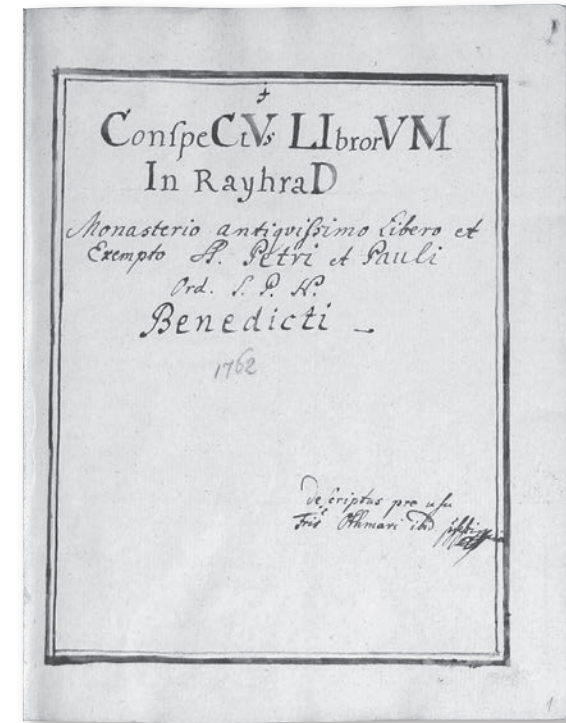 ConſpeCtVs LIbrorVM
In RayhraD
Monasterio antiquiſsimo Libero et
Exempto SS. Petri et Pauli
Ord. S. P. N.
Benedicti
1762
deſcriptus pro uſu
Fris Othmari ibid
1